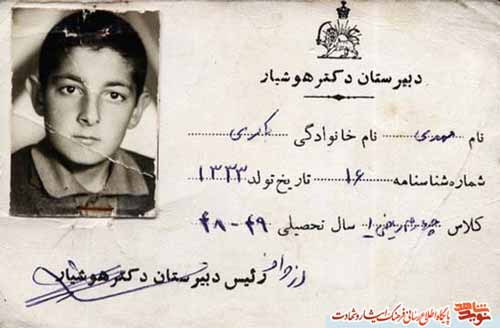 دبیرستان دکتر هوشیار
نام مهدی نام خانوادگی باکری
شماره شناسنامه ۱۶ تاریخ تولد ۱۳۳۳
کلاس چهارم ریاضی ۱ سال تحصیلی ۴۹-۴۸
رئیس دبیرستان دکتر هوشیار
نوید شاهد پایگاه اطلاع رسانی فرهنگ ایثار و شهادت